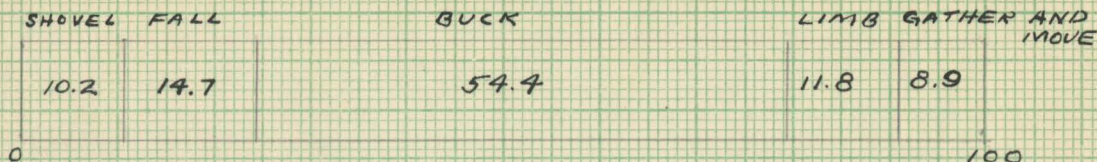 SHOVEL FALL BUCK LIMB GATHER AND
MOVE
10.2 14.7 54.4 11.8 8.9
0 100